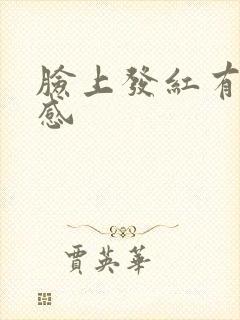 臉上發紅有
感
賈英華